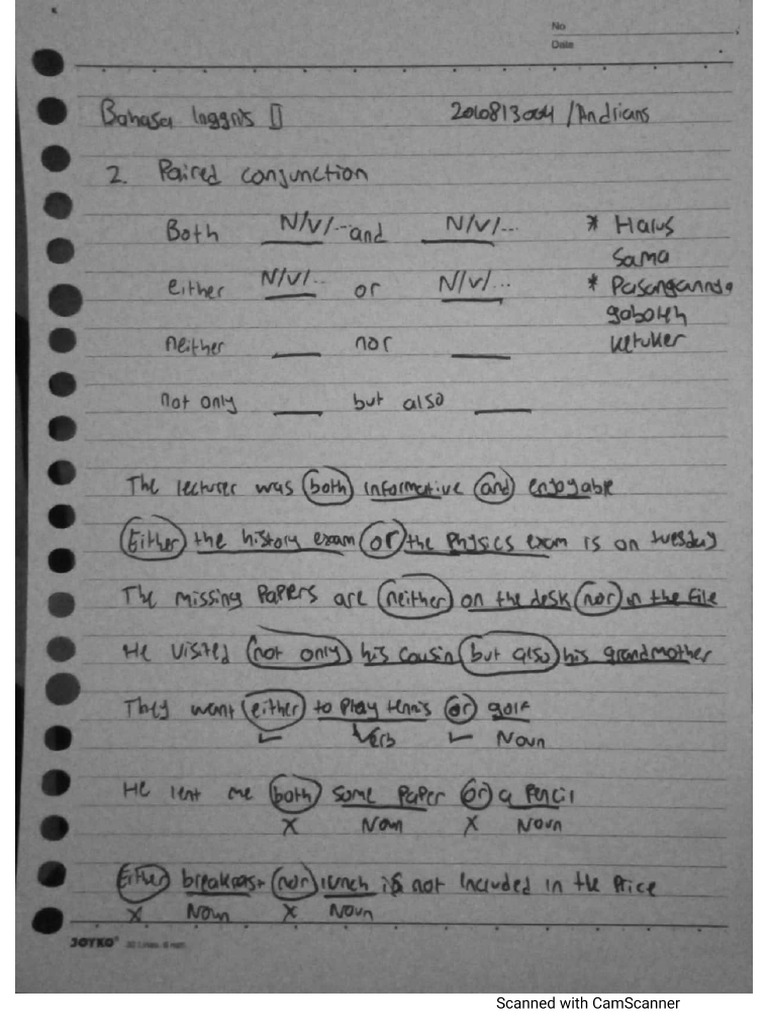 No
Date
Bahasa Inggris II 2010813004 / Andrians
2. Paired conjunction
Both N/V/... and N/V/... * Harus
Sama
either N/V/... or N/V/... * Pasangannya
gaboleh
neither ___ nor ___ ketuker
not only ___ but also ___
The lecturer was both informative and enjoyable
Either the history exam or the physics exam is on tuesday
The missing papers are neither on the desk nor in the file
He visited not only his cousin but also his grandmother
They want either to play tennis or golf
✓ Verb ✓ Noun
He lent me both some paper or a pencil
X Noun X Noun
Either breakfast nor lunch is not included in the price
X Noun X Noun
JOYKO
Scanned with CamScanner